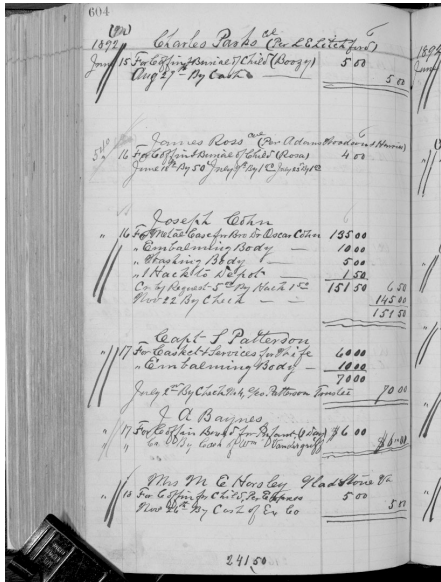 604
1892 Charles Parks col (Per L E Litchford)
June 15 For Coffin & Burial of Child (Boozy) 5 00
Aug 27th By Cash 5 00
James Ross col (Per Adams
" 16 For Coffin & Burial of Child (Rosa) 4 00
June 18th By 50 July
Joseph Cohn
" 16 For Metal Case for Bro Dr Oscar Cohn 135 00
" Embalming Body 10 00
" Washing Body 5 00
" 1 Hack to Depot 1 50
Cr by Request 5 00 By Hack 1 50 151 50 6 50
Nov 22 By Check 145 00
151 50
Capt S Patterson
" 17 For Casket & Services for Wife 60 00
" Embalming Body 10 00
70 00
July By Check Geo Patterson Trustee 70 00
J A Baynes
" 17 For Coffin Box for Infant (1 Day) $6 00
" " Cr By Cash of Wm Vandergrift $6 00
Mrs M E Horsley Gladstone Va
" 18 For Coffin for Child, Per Express 5 00
Nov 26th By Cash of Ex Co 5 00
241 50